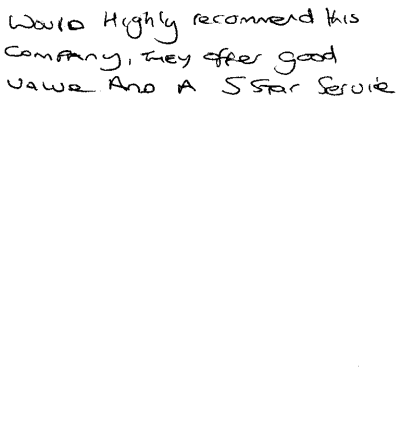 Would Highly recommend this
Company, They offer good
value And A 5 Star Service